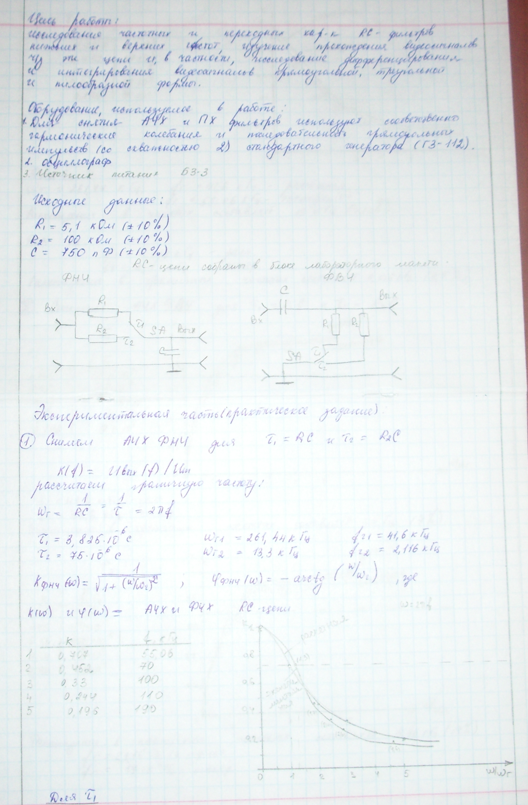 Цель работы:
исследование частотных и переходных хар-к RC-фильтров
нижних и верхних частот, изучение прохождения видеосигналов
ч/з эти цепи и, в частности, исследование дифференцирования
и интегрирования видеосигналов прямоугольной, треугольной
и пилообразной формы.
Оборудование, используемое в работе:
Для снятия АЧХ и ПХ фильтров используют соответственно
гармонические колебания и последовательность прямоугольных
импульсов (со скважностью 2) стандартного генератора (Г3-112).
2. осциллограф
3. Источник питания Б3-3
Исходные данные:
R1 = 5,1 кОм (±10%)
R2 = 100 кОм (±10%)
C = 750 пФ (±10%)
RC-цепи собраны в блоке лабораторного макета
ФНЧ ФВЧ
Вх R1 R2 τ1 τ2 SA Вых C
C Вх Вых R1 R2 SA τ1 τ2
Экспериментальная часть (практическое задание)
1. Снимем АЧХ ФНЧ для τ1 = RC и τ2 = R2C
K(f) = Uвых(f)/Uвх
рассчитаем граничную частоту:
ωг = 1/RC = 1/τ = 2πf
τ1 = 3,825·10⁻⁶ с ωг1 = 261,44 кГц fг1 = 41,6 кГц
τ2 = 75·10⁻⁶ с ωг2 = 13,3 кГц fг2 = 2,116 кГц
Kфнч(ω) = 1/√(1+(ω/ωг)²), φфнч(ω) = -arctg(ω/ωг), где
K(ω) и φ(ω) = АЧХ и ФЧХ RC-цепи
K f, кГц
1 0,707
2 70
3 0,33 100
4 110
5 0,196 190
0 1 2 3 4 5 ω/ωг
Для τ1